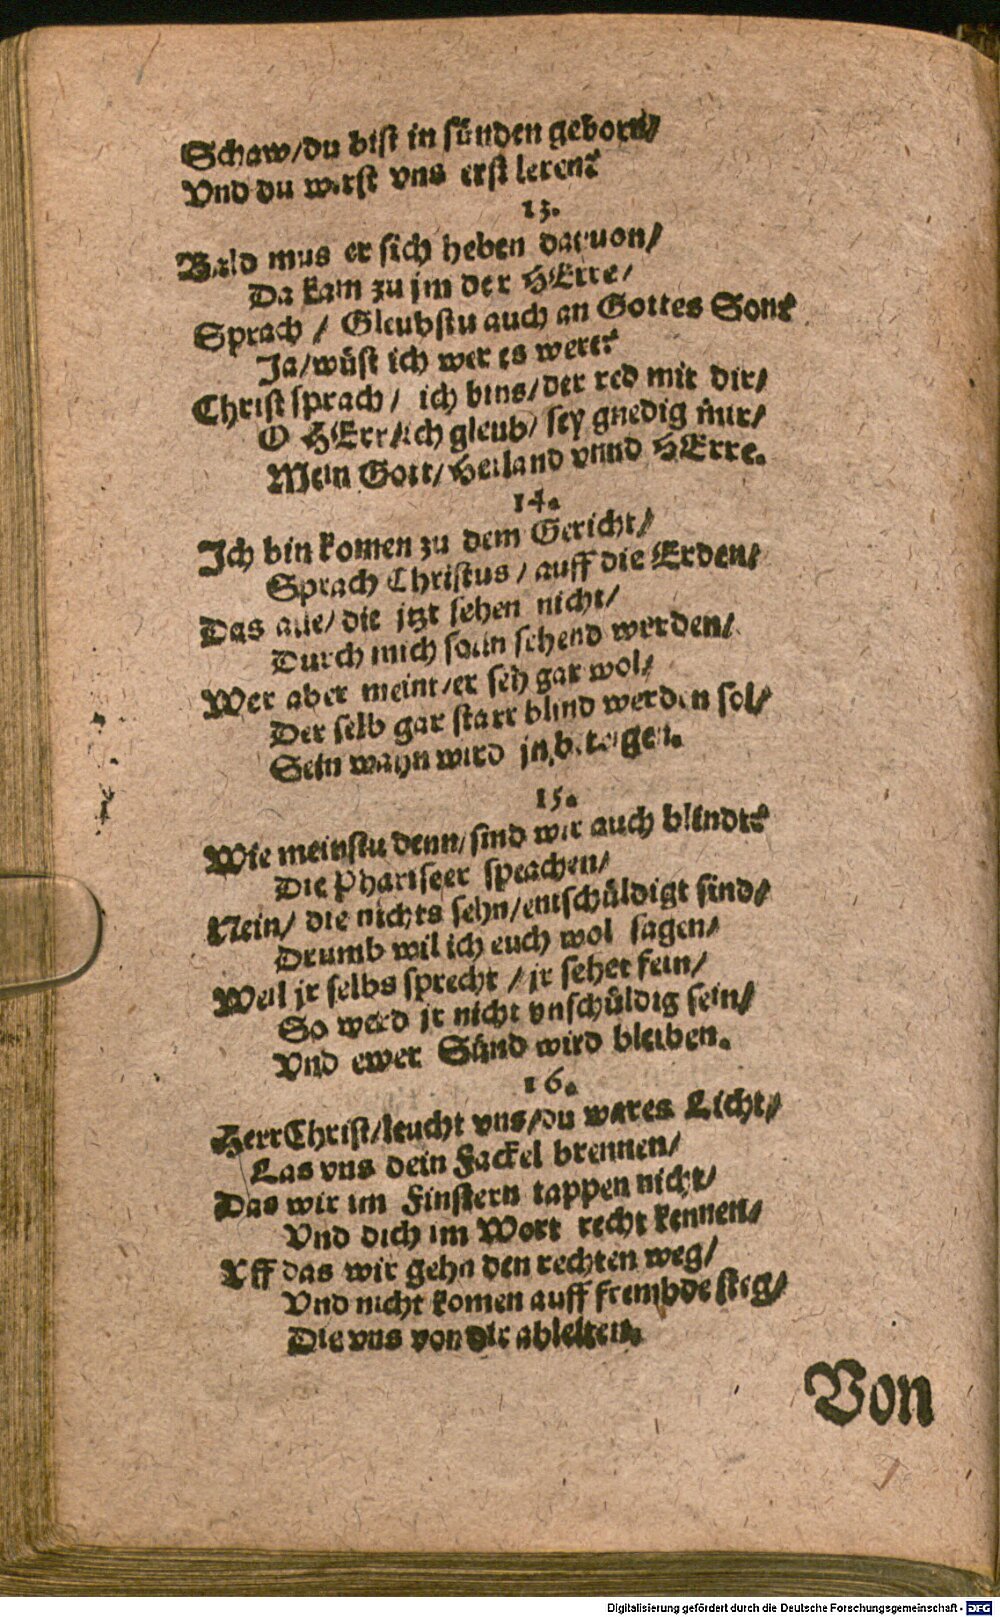 Schaw/du bist in sünden geborn/
Vnd du wirst vns erst leren?
13.
Bald mus er sich heben daruon/
Da kam zu jm der HErre/
Sprach / Gleubstu auch an Gottes Son?
Ja/wüst ich wer es were?
Christ sprach / ich bins/der red mit dir/
O HErr/ich gleub/ sey gnedig mir/
Mein Gott/Heiland vnnd HErre.
14.
Ich bin komen zu dem Gericht/
Sprach Christus / auff die Erden/
Das alle/die jtzt sehen nicht/
Durch mich solln sehend werden/
Wer aber meint/er seh gar wol/
Der selb gar starr blind werden sol/
Sein wahn wird jn
15.
Wie meinstu denn/sind wir auch blindt?
Die Phariseer sprachen/
Nein/ die nichts sehn/entschüldigt sind/
Drumb wil ich euch wol sagen/
Weil jr selbs sprecht / jr sehet fein/
So werd jr nicht vnschüldig sein/
Vnd ewer Sünd wird bleiben.
16.
Herr Christ/leucht vns/du wares Licht/
Las vns dein Fackel brennen/
Das wir im Finstern tappen nicht/
Vnd dich im Wort recht kennen/
Vff das wir gehn den rechten weg/
Vnd nicht komen auff frembde steg/
Die vns von dir ableiten.
Von
Digitalisierung gefördert durch die Deutsche Forschungsgemeinschaft - DFG